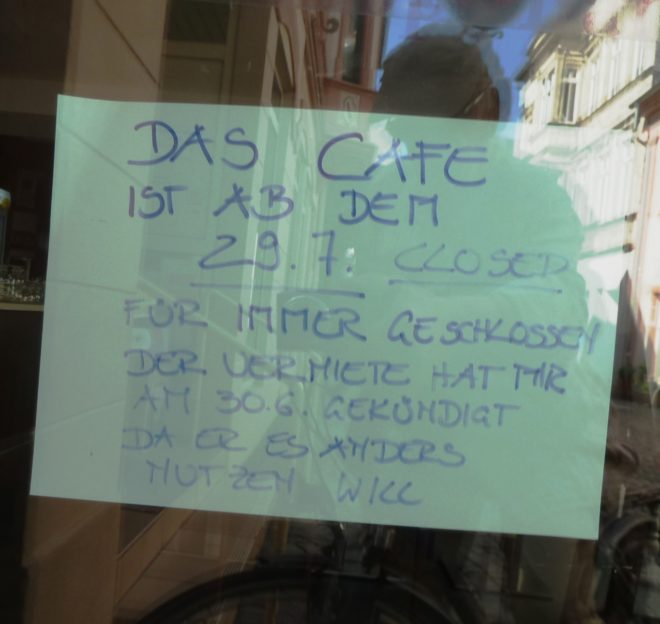 DAS CAFE
IST AB DEM
29.7. CLOSED
FÜR IMMER GESCHLOSSEN
DER VERMIETE HAT MIR
AM 30.6. GEKÜNDIGT
DA ER ES ANDERS
NUTZEN WILL